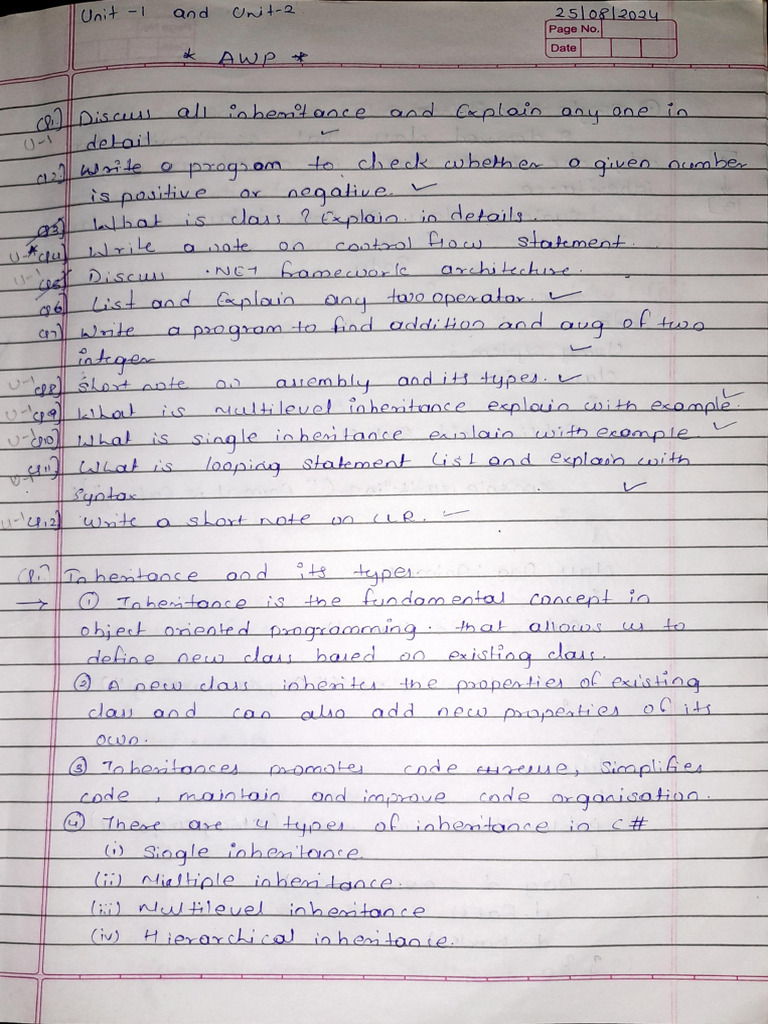 Unit-1 and Unit-2
25/08/2024
Page No.
Date
* AWP *
Q1] Discuss all inheritance and Explain any one in
U-1
detail ✓
Q2] Write a program to check whether a given number
is positive or negative. ✓
Q3] What is class? Explain in details.
U-*Q4] Write a note on control flow statement.
U-1 Q5] Discuss .NET framework architecture.
Q6 List and Explain any two operator. ✓
Q7] Write a program to find addition and aug of two
integer ✓
U-1 Q8] Short note on assembly and its types. ✓
U-1 Q9 What is Multilevel inheritance explain with example. ✓
U-1 Q10] What is single inheritance explain with example ✓
Q11] What is looping statement list and explain with
U-1
Syntax ✓
U-1 Q12] Write a short note on CLR. ✓
Q1. Inheritance and its types.
→ ① Inheritance is the fundamental concept in
object oriented programming. that allows us to
define new class based on existing class.
② A new class inherites the properties of existing
class and can also add new properties of its
own.
③ Inheritances promotes code reuse, simplifies
code, maintain and improve code organisation.
④ There are 4 types of inheritance in C#
(i) Single inheritance.
(ii) Multiple inheritance.
(iii) Multilevel inheritance
(iv) Hierarchical inheritance.